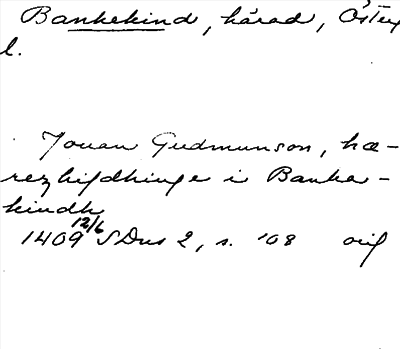 Bankekind, härad, Österg
l.
Jouan Gudmunson, hæ-
rezhifdhinge i Banka-
kindh
1409 12/6 SDns 2, s. 108 orig